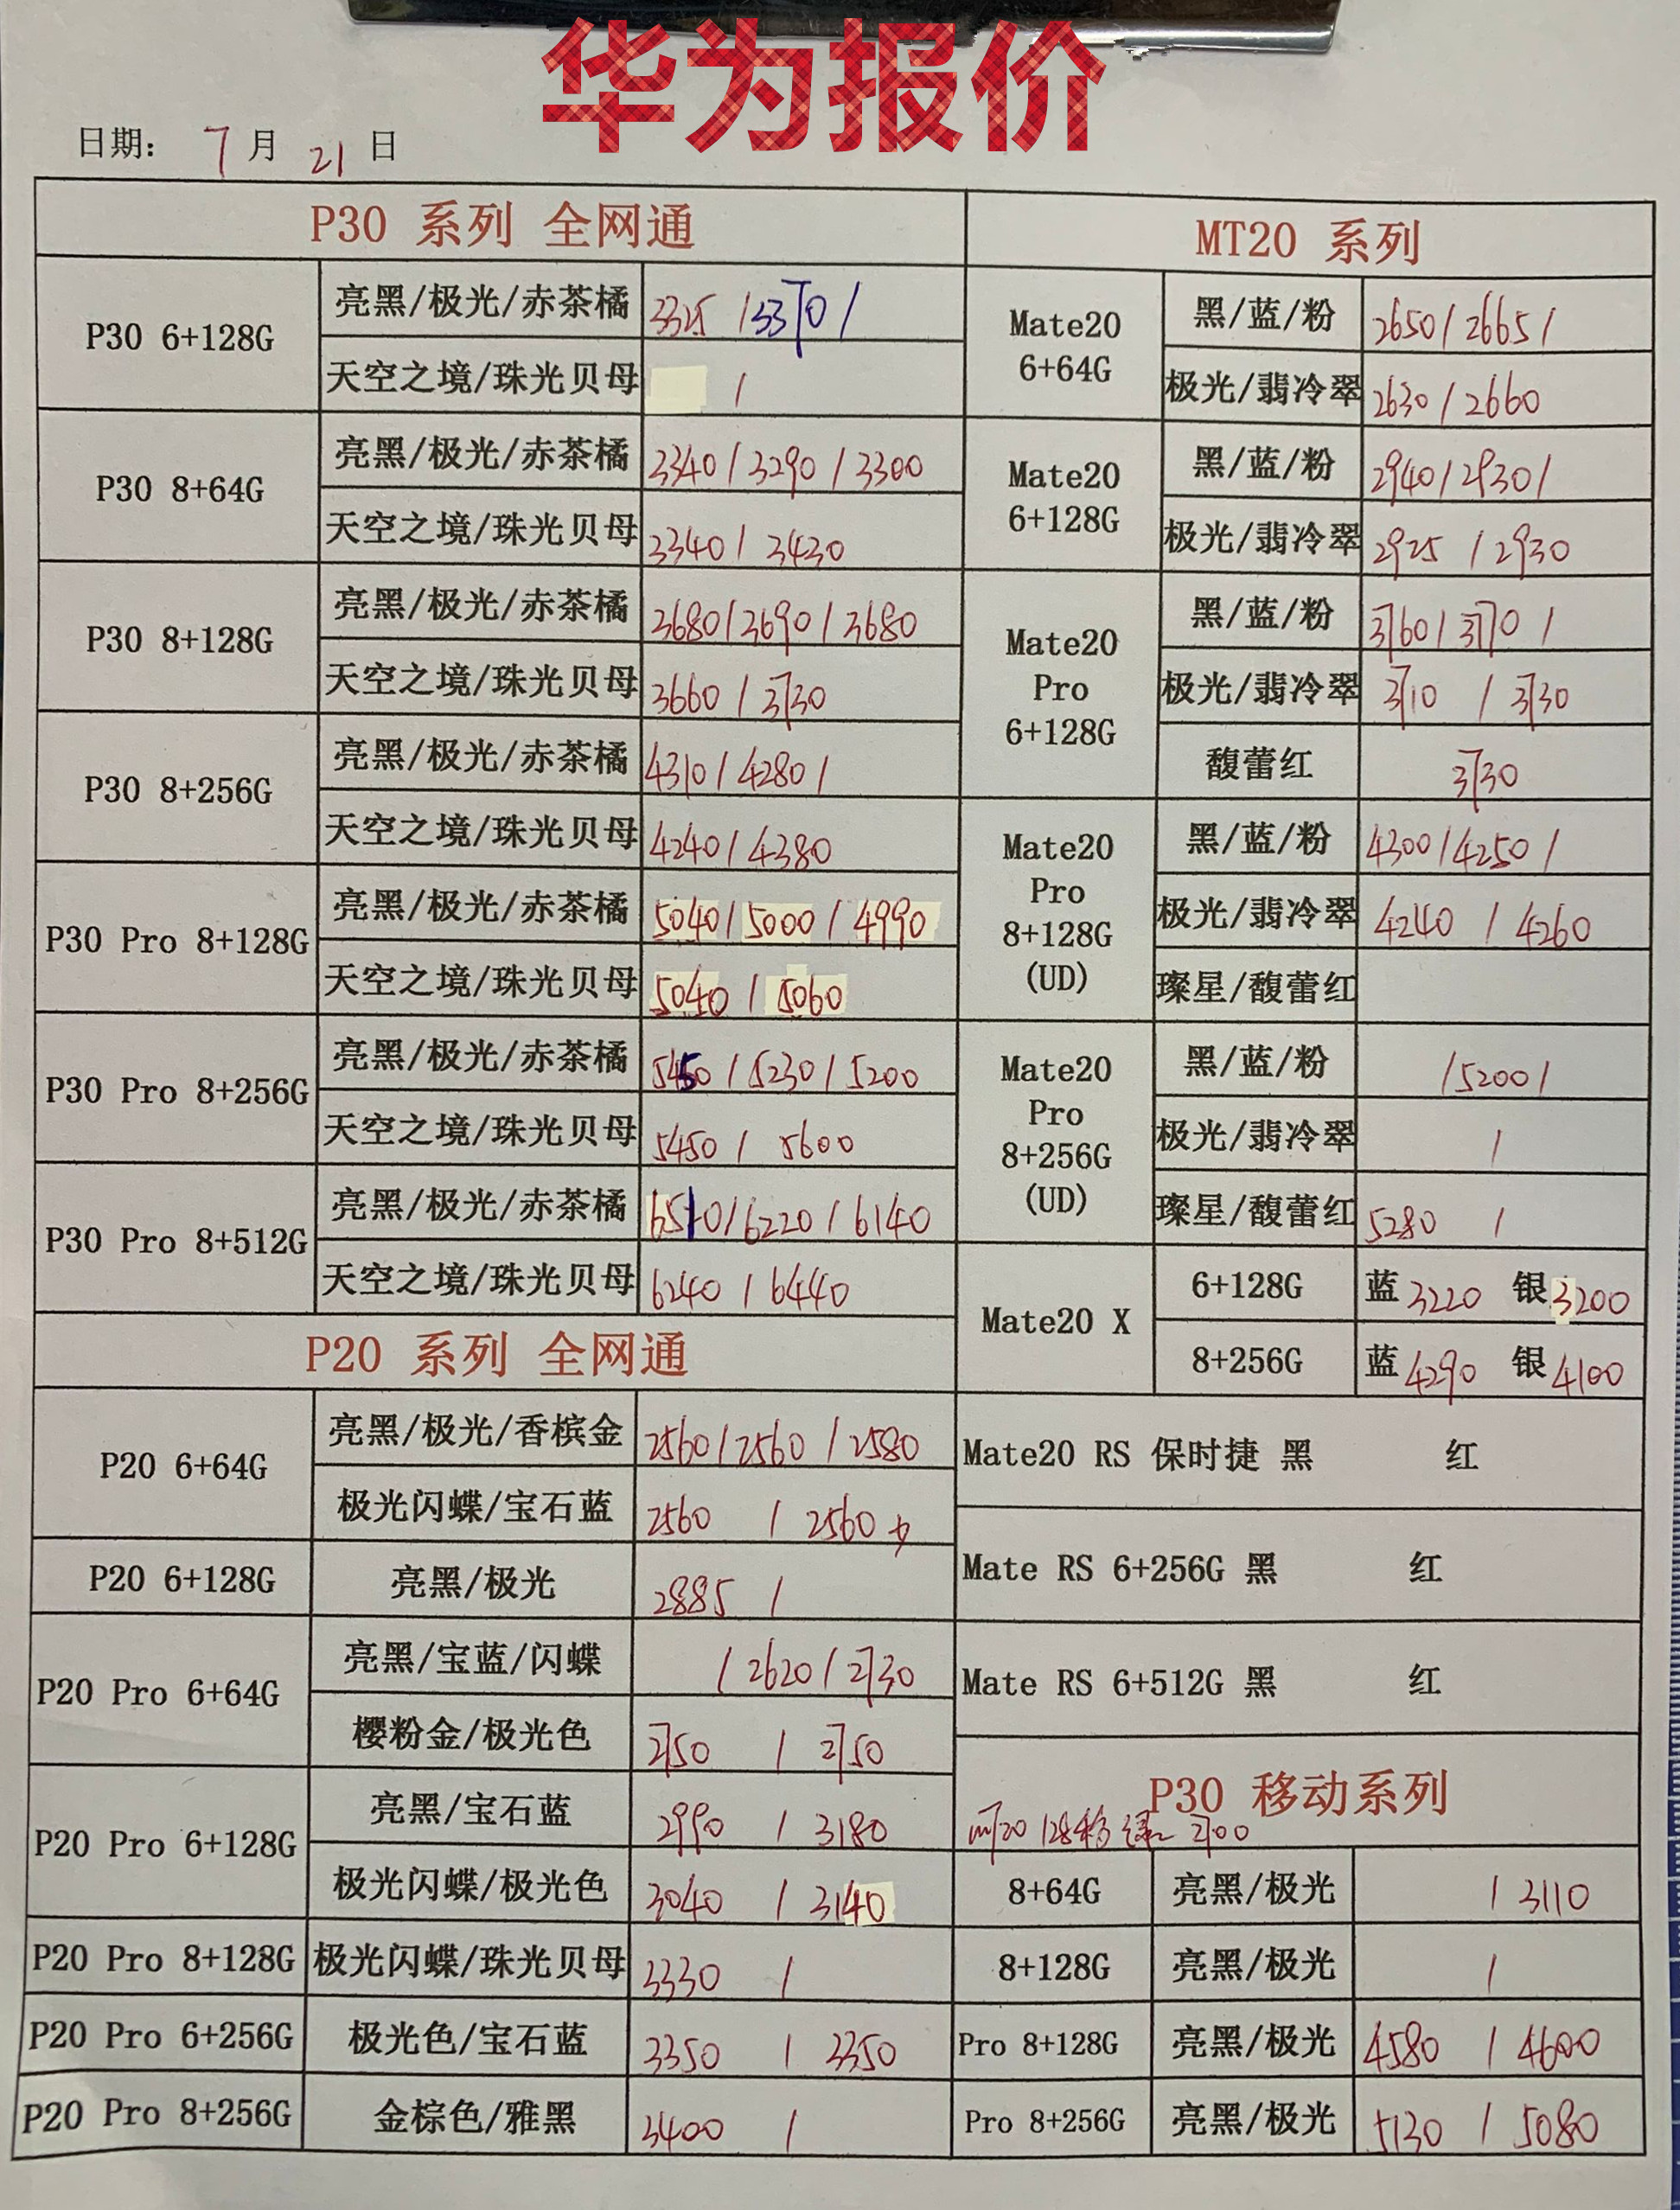 华为报价
日期: 7 月 21 日
P30 系列 全网通
P30 6+128G
亮黑/极光/赤茶橘 3325 / 3370 /
天空之境/珠光贝母 /
P30 8+64G
亮黑/极光/赤茶橘 3340 / 3290 / 3300
天空之境/珠光贝母 3340 / 3430
P30 8+128G
亮黑/极光/赤茶橘 3680 / 3690 / 3680
天空之境/珠光贝母 3660 / 3730
P30 8+256G
亮黑/极光/赤茶橘 4310 / 4280 /
天空之境/珠光贝母 4240 / 4380
P30 Pro 8+128G
亮黑/极光/赤茶橘 5040 / 5000 / 4990
天空之境/珠光贝母 5040 / 5060
P30 Pro 8+256G
亮黑/极光/赤茶橘 5450 / 5230 / 5200
天空之境/珠光贝母 5450 / 5600
P30 Pro 8+512G
亮黑/极光/赤茶橘 6510 / 6220 / 6140
天空之境/珠光贝母 6240 / 6440
P20 系列 全网通
P20 6+64G
亮黑/极光/香槟金 2560 / 2560 / 2580
极光闪蝶/宝石蓝 2560 / 2560
P20 6+128G 亮黑/极光 2885 /
P20 Pro 6+64G
亮黑/宝蓝/闪蝶 / 2620 / 2730
樱粉金/极光色 2750 / 2750
P20 Pro 6+128G
亮黑/宝石蓝 2990 / 3180
极光闪蝶/极光色 3040 / 3140
P20 Pro 8+128G 极光闪蝶/珠光贝母 3330 /
P20 Pro 6+256G 极光色/宝石蓝 3350 / 3350
P20 Pro 8+256G 金棕色/雅黑 3400 /
MT20 系列
Mate20
6+64G
黑/蓝/粉 2650 / 2665 /
极光/翡冷翠 2630 / 2660
Mate20
6+128G
黑/蓝/粉 2940 / 2930 /
极光/翡冷翠 2925 / 2930
Mate20
Pro
6+128G
黑/蓝/粉 3760 / 3770 /
极光/翡冷翠 3710 / 3730
馥蕾红 3730
Mate20
Pro
8+128G
(UD)
黑/蓝/粉 4300 / 4250 /
极光/翡冷翠 4240 / 4260
璨星/馥蕾红
Mate20
Pro
8+256G
(UD)
黑/蓝/粉 / 5200 /
极光/翡冷翠 /
璨星/馥蕾红 5280 /
Mate20 X
6+128G 蓝 3220 银 3200
8+256G 蓝 4290 银 4100
Mate20 RS 保时捷 黑 红
Mate RS 6+256G 黑 红
Mate RS 6+512G 黑 红
P30 移动系列
128移 2700
8+64G 亮黑/极光 / 3110
8+128G 亮黑/极光 /
Pro 8+128G 亮黑/极光 4580 / 4600
Pro 8+256G 亮黑/极光 5130 / 5080